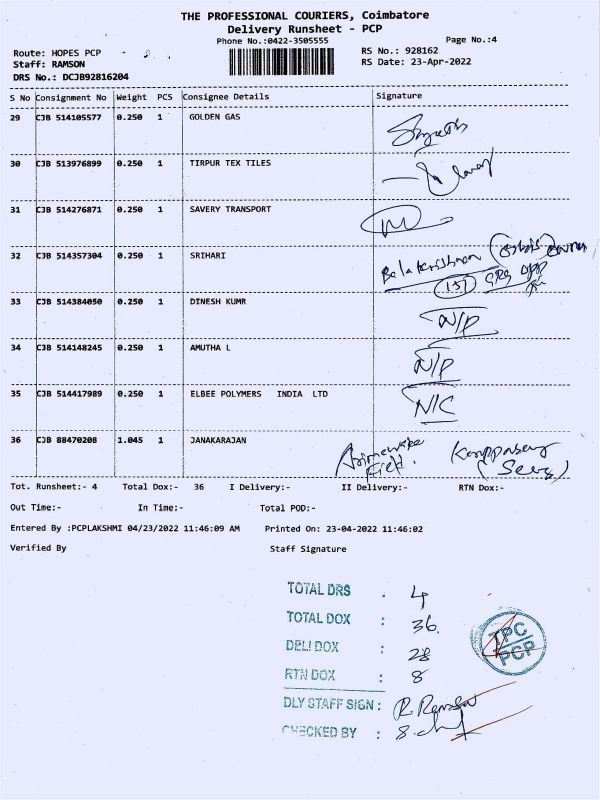 THE PROFESSIONAL COURIERS, Coimbatore
Delivery Runsheet - PCP
Phone No.:0422-3505555
Page No.:4
Route: HOPES PCP
RS No.: 928162
Staff: RAMSON
RS Date: 23-Apr-2022
DRS No.: DCJB92816204
S No Consignment No Weight PCS Consignee Details Signature
29 CJB 514105577 0.250 1 GOLDEN GAS
30 CJB 513976899 0.250 1 TIRPUR TEX TILES
31 CJB 514276871 0.250 1 SAVERY TRANSPORT
32 CJB 514357304 0.250 1 SRIHARI Balakrishnan
33 CJB 514384050 0.250 1 DINESH KUMR N/P
34 CJB 514148245 0.250 1 AMUTHA L N/P
35 CJB 514417989 0.250 1 ELBEE POLYMERS INDIA LTD N/C
36 CJB 88470208 1.045 1 JANAKARAJAN
Tot. Runsheet:- 4 Total Dox:- 36 I Delivery:- II Delivery:- RTN Dox:-
Out Time:- In Time:- Total POD:-
Entered By :PCPLAKSHMI 04/23/2022 11:46:09 AM Printed On: 23-04-2022 11:46:02
Verified By Staff Signature
TOTAL DRS : 4
TOTAL DOX : 36.
DELI DOX : 28
RTN DOX : 8
DLY STAFF SIGN : R. Ramson
CHECKED BY :
TPC
PCP